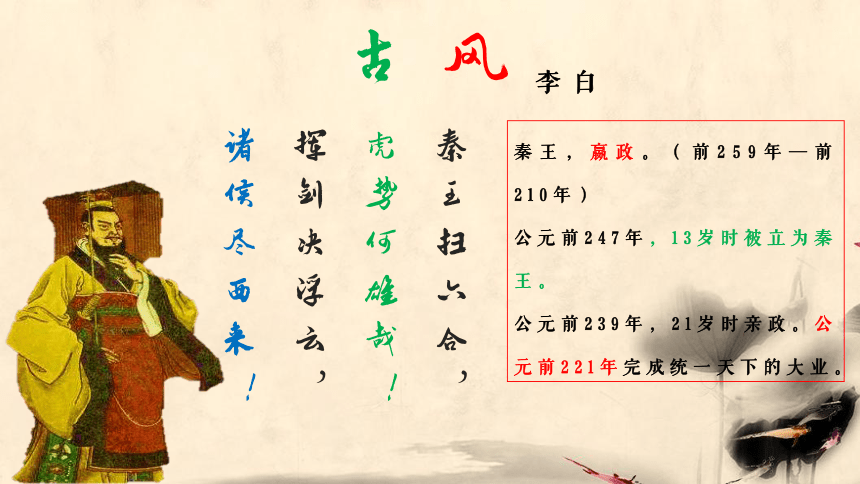 古 风
李白
秦王扫六合，
虎势何雄哉！
挥剑决浮云，
诸侯尽西来！
秦王，嬴政。（前259年—前
210年）
公元前247年，13岁时被立为秦
王。
公元前239年，21岁时亲政。公
元前221年完成统一天下的大业。